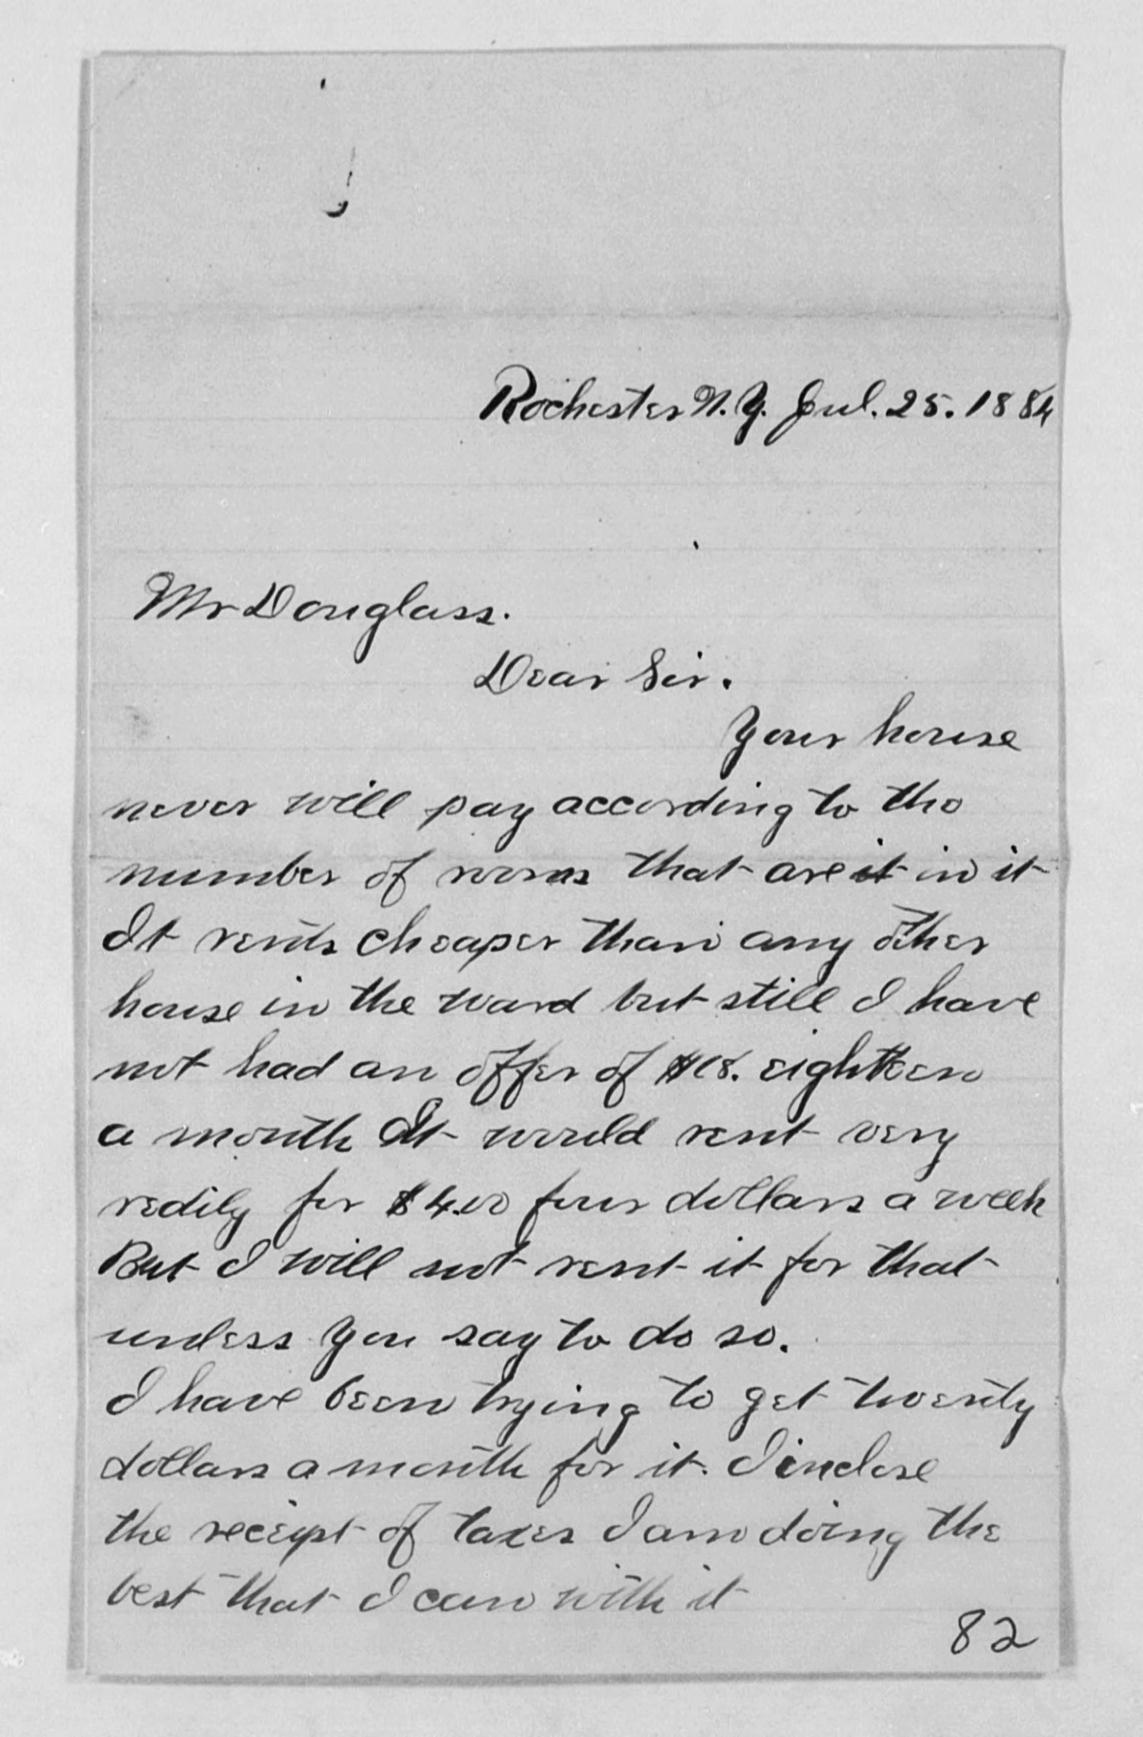 Rochester N.Y. Jul. 25. 1884
Mr Douglass.
Dear Sir.
Your house
never will pay according to the
number of rooms that are it in it
It rents cheaper than any other
house in the ward but still I have
not had an offer of $18. eighteen
a month It would rent very
redily for $4.00 four dollars a week
But I will not rent it for that
unless you say to do so.
I have been trying to get twenty
dollars a month for it. I inclose
the receipt of taxes I am doing the
best that I can with it
82